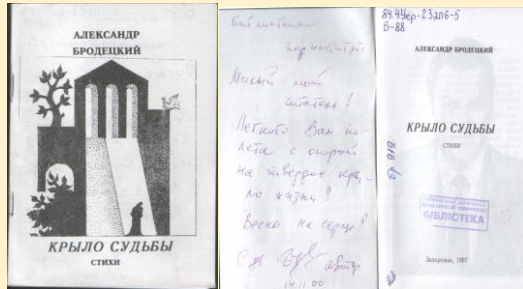 АЛЕКСАНДР
БРОДЕЦКИЙ
КРЫЛО СУДЬБЫ
СТИХИ
Милый мой
читатель!
Легкого Вам по-
лета с опорой
на твердое кры-
ло жизни!
Весна на сердце!
автор
84.4Укр-23ZП6-5
Б-88
АЛЕКСАНДР БРОДЕЦКИЙ
КРЫЛО СУДЬБЫ
СТИХИ
БІБЛІОТЕКА
Запорожье, 1997